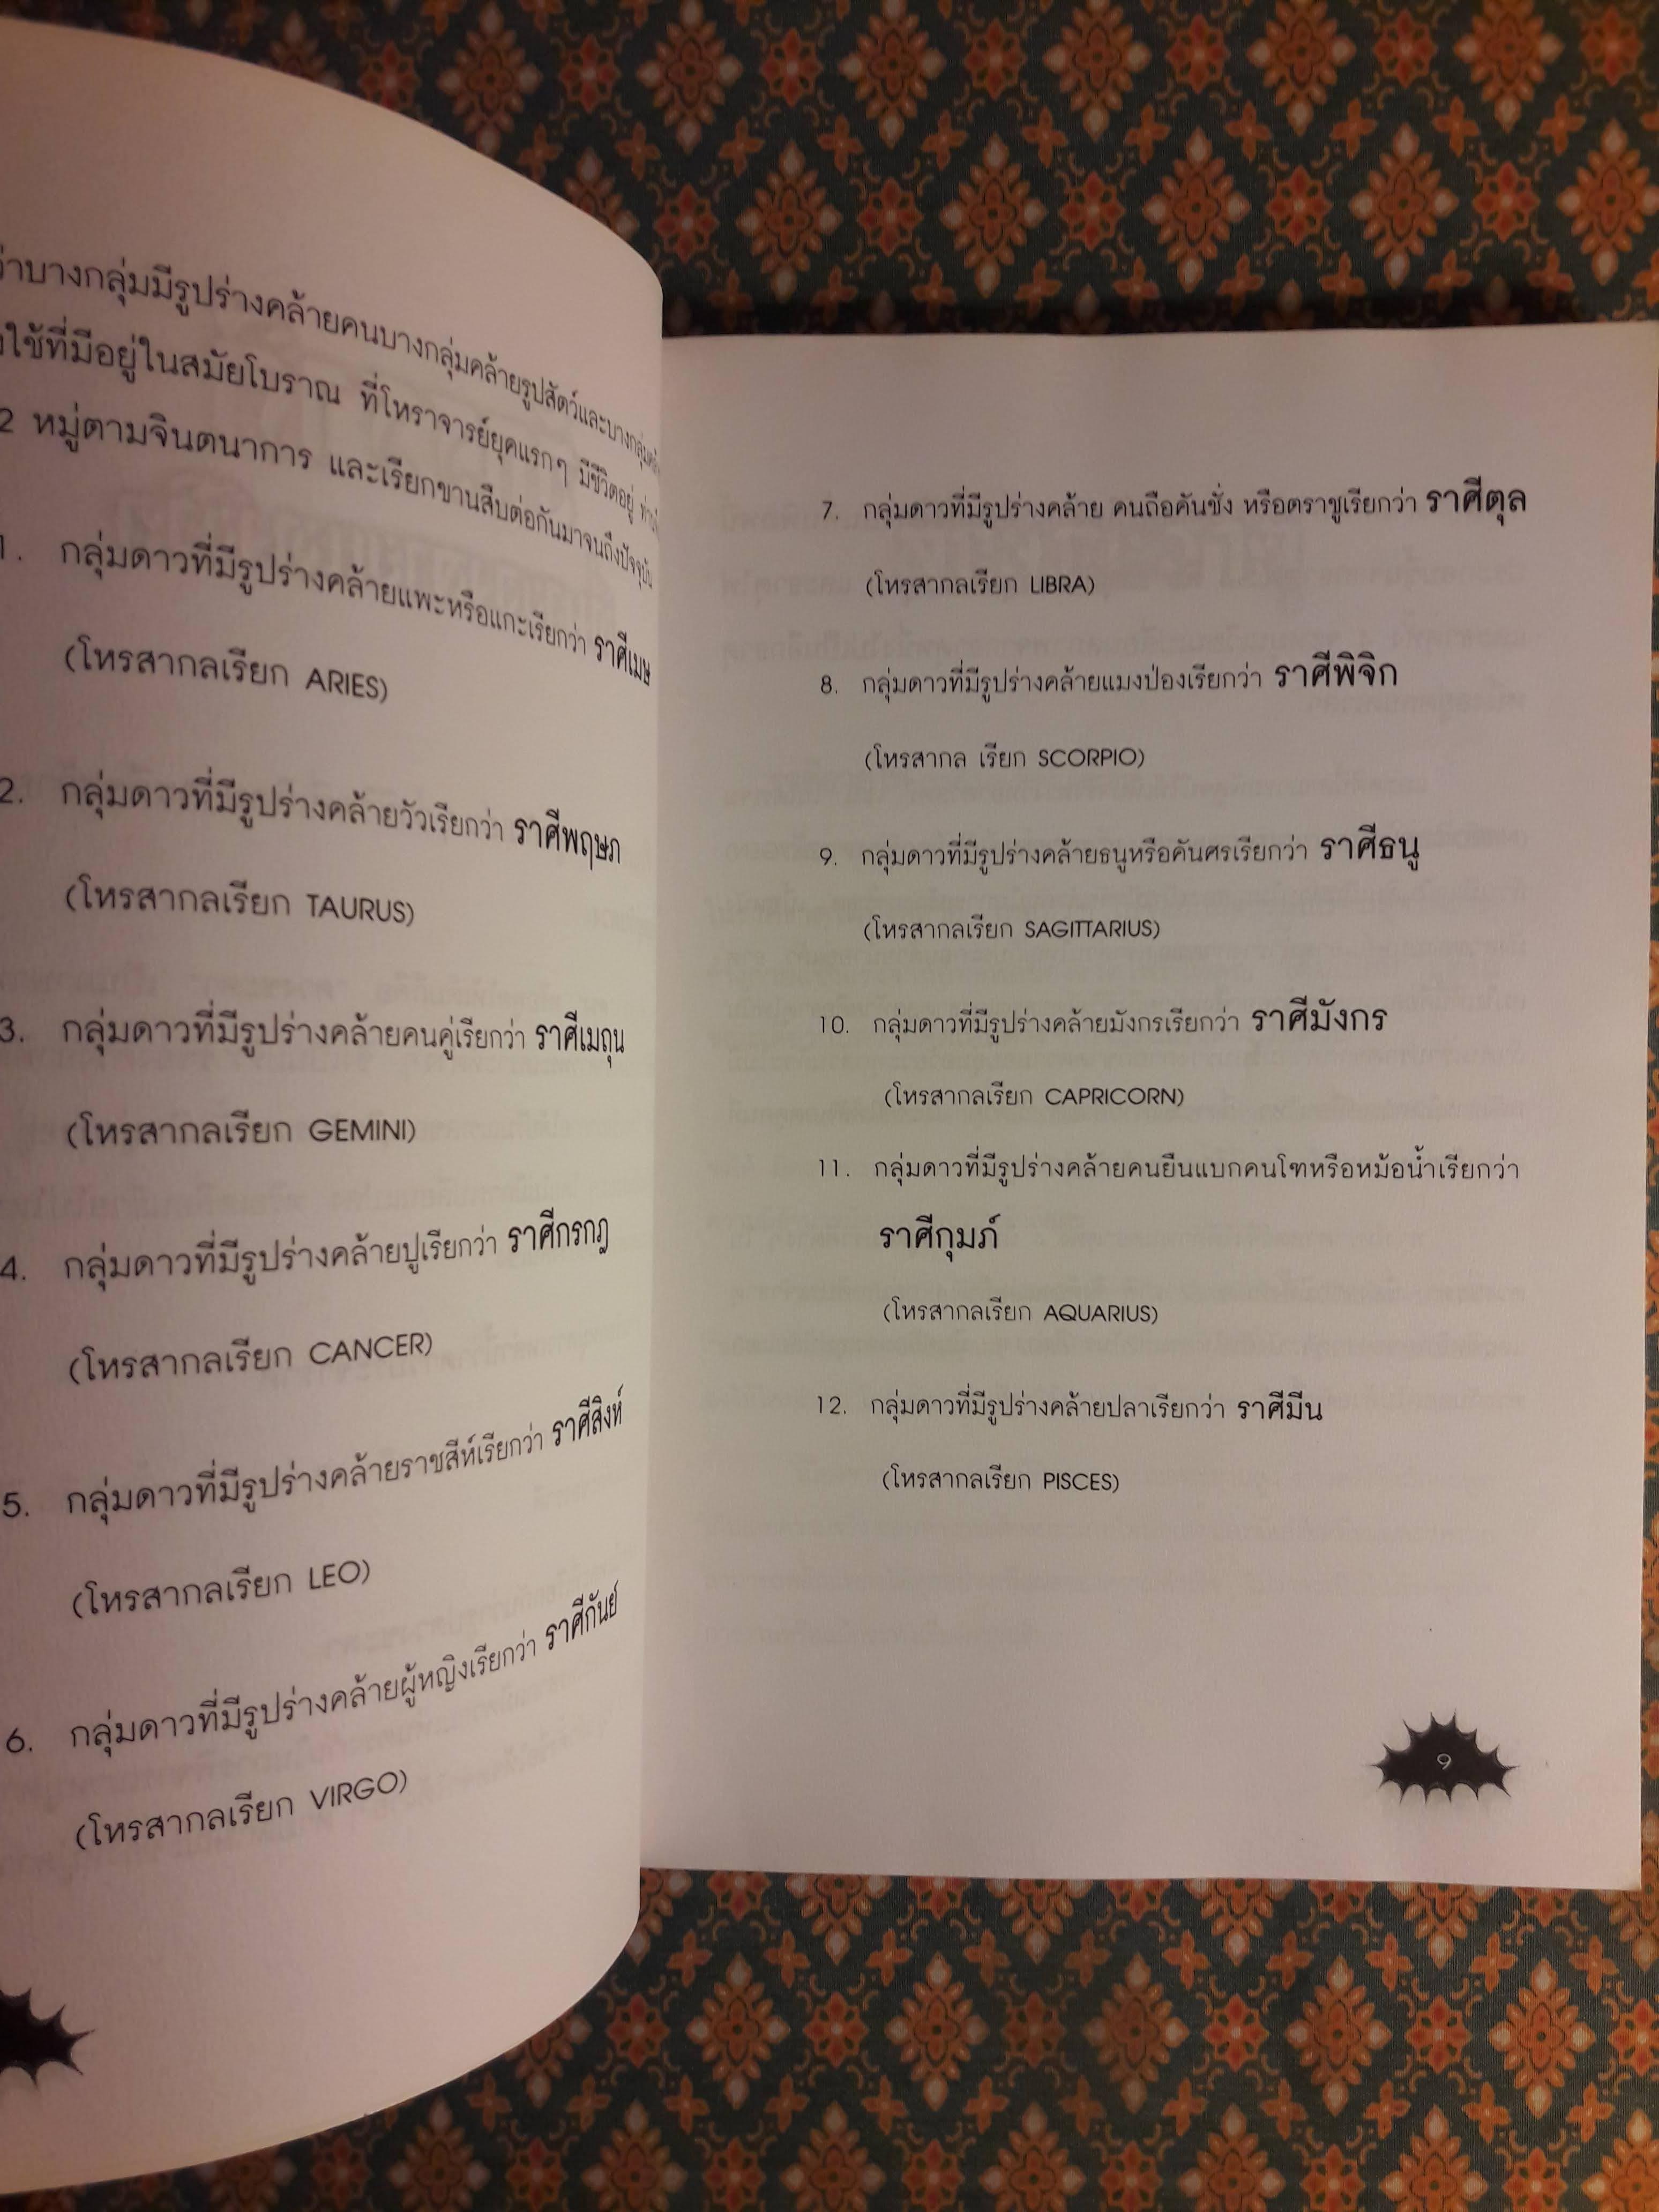 ว่าบางกลุ่มมีรูปร่างคล้ายคนบางกลุ่มคล้ายรูปสัตว์และบางกลุ่ม
ใช้ที่มีอยู่ในสมัยโบราณ ที่โหราจารย์ยุคแรกๆ มีชีวิตอยู่
2 หมู่ตามจินตนาการ และเรียกขานสืบต่อกันมาจนถึงปัจจุบัน
1. กลุ่มดาวที่มีรูปร่างคล้ายแพะหรือแกะเรียกว่า ราศีเมษ
(โหรสากลเรียก ARIES)
2. กลุ่มดาวที่มีรูปร่างคล้ายวัวเรียกว่า ราศีพฤษภ
(โหรสากลเรียก TAURUS)
3. กลุ่มดาวที่มีรูปร่างคล้ายคนคู่เรียกว่า ราศีเมถุน
(โหรสากลเรียก GEMINI)
4. กลุ่มดาวที่มีรูปร่างคล้ายปูเรียกว่า ราศีกรกฎ
(โหรสากลเรียก CANCER)
5. กลุ่มดาวที่มีรูปร่างคล้ายราชสีห์เรียกว่า ราศีสิงห์
(โหรสากลเรียก LEO)
6. กลุ่มดาวที่มีรูปร่างคล้ายผู้หญิงเรียกว่า ราศีกันย์
(โหรสากลเรียก VIRGO)
7. กลุ่มดาวที่มีรูปร่างคล้าย คนถือคันชั่ง หรือตราชูเรียกว่า ราศีตุล
(โหรสากลเรียก LIBRA)
8. กลุ่มดาวที่มีรูปร่างคล้ายแมงป่องเรียกว่า ราศีพิจิก
(โหรสากล เรียก SCORPIO)
9. กลุ่มดาวที่มีรูปร่างคล้ายธนูหรือคันศรเรียกว่า ราศีธนู
(โหรสากลเรียก SAGITTARIUS)
10. กลุ่มดาวที่มีรูปร่างคล้ายมังกรเรียกว่า ราศีมังกร
(โหรสากลเรียก CAPRICORN)
11. กลุ่มดาวที่มีรูปร่างคล้ายคนยืนแบกคนโฑหรือหม้อน้ำเรียกว่า
ราศีกุมภ์
(โหรสากลเรียก AQUARIUS)
12. กลุ่มดาวที่มีรูปร่างคล้ายปลาเรียกว่า ราศีมีน
(โหรสากลเรียก PISCES)
9